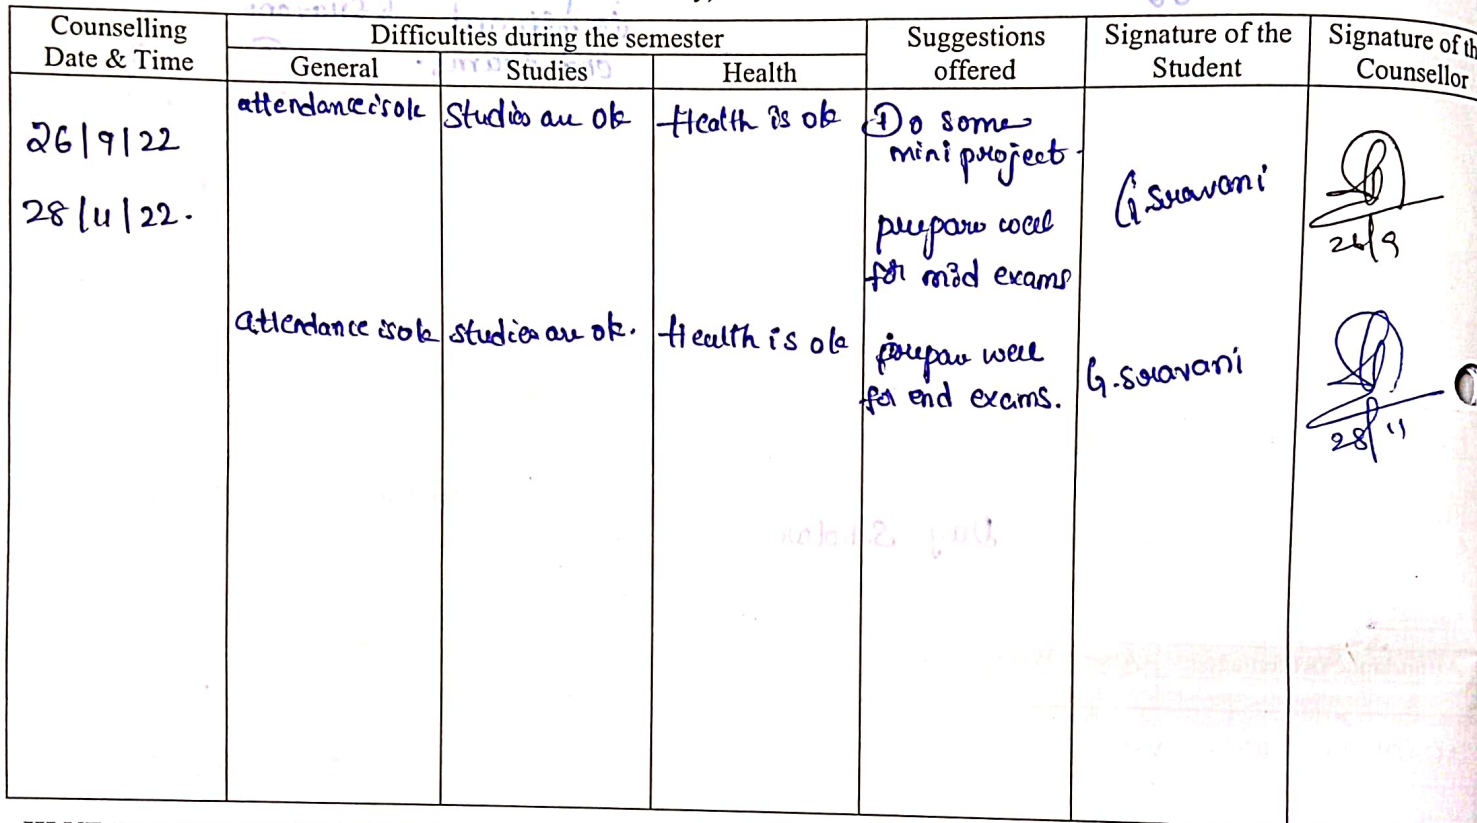 Counselling Date & Time
Difficulties during the semester
General
Studies
Health
Suggestions offered
Signature of the Student
Signature of th
Counsellor
26/9/22
attendance is ok
Studies are ok
Health is ok
Do some
mini project.
prepare well
for mid exams
G. Sravani
26/9
28/11/22.
attendance is ok
studies are ok.
Health is ok
prepare well
for end exams.
G. Sravani
28/11